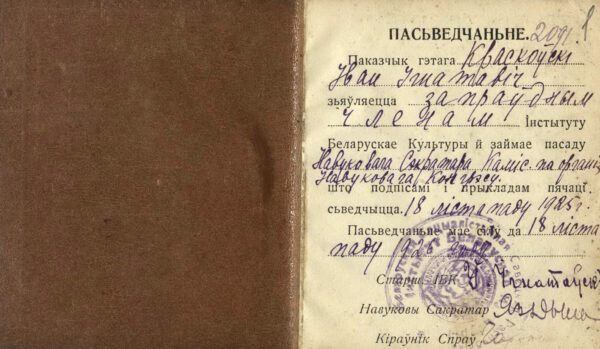 ПАСЬВЕДЧАНЬНЕ.
Паказчык гэтага Краскоўскі
Іван Ігнатавіч
зьяўляецца запраўдным
членам Інстытуту
Беларускае Культуры й займае пасаду
Навуковага Сакратара Каміс. па
Навуковага Конгрэсу
што подпісамі і прыкладам пячаці
сьведчыцца. 18 лістападу 1925 г.
Пасьведчаньне мае сілу да 18 ліста
паду 192
Старш. ІБК
Навуковы Сакратар
Кіраўнік Спраў